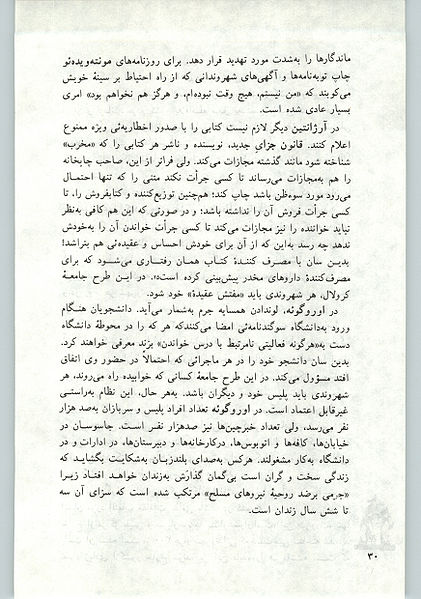 ماندگارها را به‌شدت مورد تهدید قرار دهد. برای روزنامه‌های مونته‌ویده‌ئو
چاپ توبه‌نامه‌ها و آگهی‌های شهروندانی که از راه احتیاط بر سینهٔ خویش
می‌کوبند که «من نیستم، هیچ وقت نبوده‌ام، و هرگز هم نخواهم بود» امری
بسیار عادی شده است.
در آرژانتین دیگر لازم نیست کتابی را با صدور اخطاریه‌ئی ویژه ممنوع
اعلام کنند. قانون جزای جدید، نویسنده و ناشر هر کتابی را که «مخرب»
شناخته شود مانند گذشته مجازات می‌کند. ولی فراتر از این، صاحب چاپخانه
را هم به‌مجازات می‌رساند تا کسی جرأت نکند متنی را که تنها احتمال
می‌رود مورد سوءظن باشد چاپ کند؛ هم‌چنین توزیع‌کننده و کتابفروش را، تا
کسی جرأت فروش آن را نداشته باشد؛ و در صورتی که این هم کافی به‌نظر
نیاید خواننده را نیز مجازات می‌کند تا کسی جرأت خواندن آن را به‌خودش
ندهد چه رسد به‌این که از آن برای خودش احساس و عقیده‌ئی هم بتراشد!
بدین سان با مصرف کنندهٔ کتاب همان رفتاری می‌شود که برای
مصرف‌کنندهٔ داروهای مخدر پیش‌بینی کرده است. در این طرح جامعهٔ
کرولال، هر شهروندی باید «مفتش عقیدهٔ» خود شود.
در اوروگوئه، لوندادن همسایه جرم به‌شمار می‌آید. دانشجویان هنگام
ورود به‌دانشگاه سوگندنامه‌ئی امضا می‌کنندکه هر که را در محوطهٔ دانشگاه
دست به«هرگونه فعالیتی نامرتبط با درس خواندن» بزند معرفی خواهند کرد.
بدین سان دانشجو خود را در هر ماجرائی که احتمالاً در حضور وی اتفاق
افتد مسؤول می‌کند. در این طرح جامعهٔ کسانی که خوابیده راه می‌روند، هر
شهروندی باید پلیس خود و دیگران باشد. به‌هر حال، این نظام به‌راستی
غیرقابل اعتماد است. در اوروگوئه تعداد افراد پلیس و سربازان به‌صد هزار
نفر می‌رسد، ولی تعداد خبرچین‌ها نیز صدهزار نفر است. جاسوسان در
خیابان‌ها، کافه‌ها و اتوبوس‌ها، درکارخانه‌ها و دبیرستان‌ها، در ادارات و در
دانشگاه به‌کار مشغولند. هرکس به‌صدای بلندزبان به‌شکایت بگشاید که
زندگی سخت و گران است بی‌گمان گذارش به‌زندان خواهد افتاد زیرا
«جرمی برضد روحیهٔ نیروهای مسلح» مرتکب شده است که سزای آن سه
تا شش سال زندان است.
۳۰